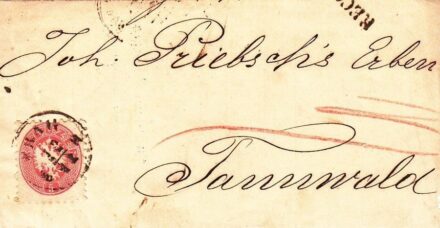 REC
Joh. Priebsch's Erben
Tannwald